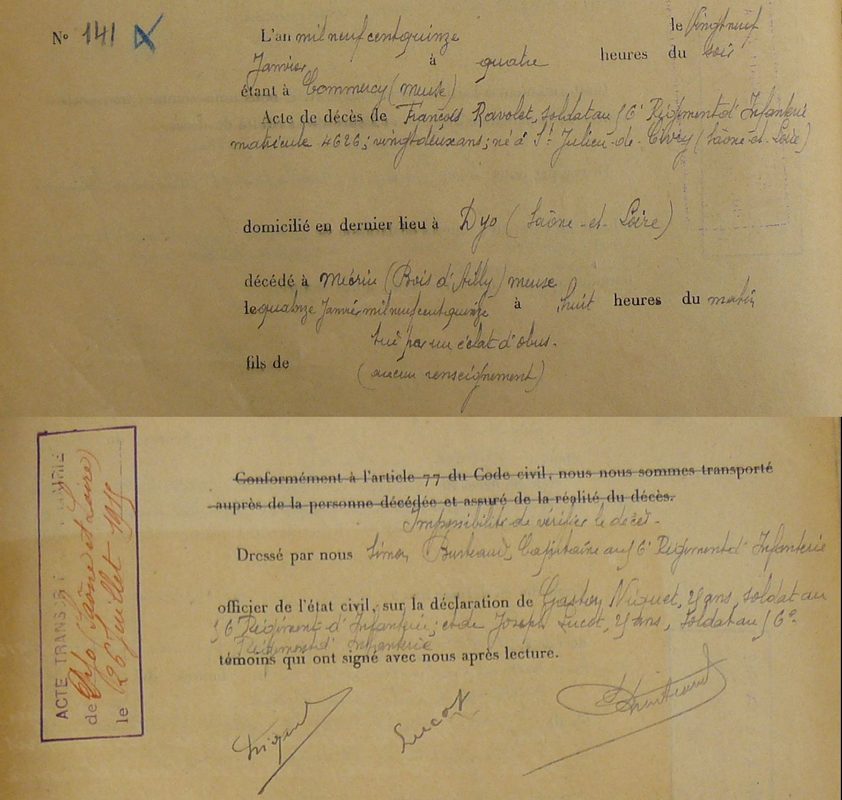 N° 141 L'an mil neuf cent quinze le Vingt neuf
Janvier à quatre heures du soir
étant à Commercy (Meuse)
Acte de décès de François Ravolet, soldat au 56e Régiment d'Infanterie
matricule 4626; vingt deux ans; né à St Julien-de-Civry (Saône-et-Loire)
domicilié en dernier lieu à Dyo (Saône-et-Loire)
décédé à Mécrin (Bois d'Ailly) Meuse
le quatorze Janvier mil neuf cent quinze à huit heures du matin
tué par un éclat d'obus.
fils de
(aucun renseignement)
Conformément à l'article 77 du Code civil, nous nous sommes transporté
auprès de la personne décédée et assuré de la réalité du décès.
Impossibilité de vérifier le décès.
Dressé par nous Simon Capitaine au 56e Régiment d'Infanterie
officier de l'état civil, sur la déclaration de Gaston 25 ans, soldat au
56e Régiment d'Infanterie; et de Joseph Lucot, 25 ans, soldat au 56e
Régiment d'Infanterie
témoins qui ont signé avec nous après lecture.
Lucot
ACTE TRANSCRIT MAIRIE
de Dyo (Saône et Loire)
le (26 Juillet 1915